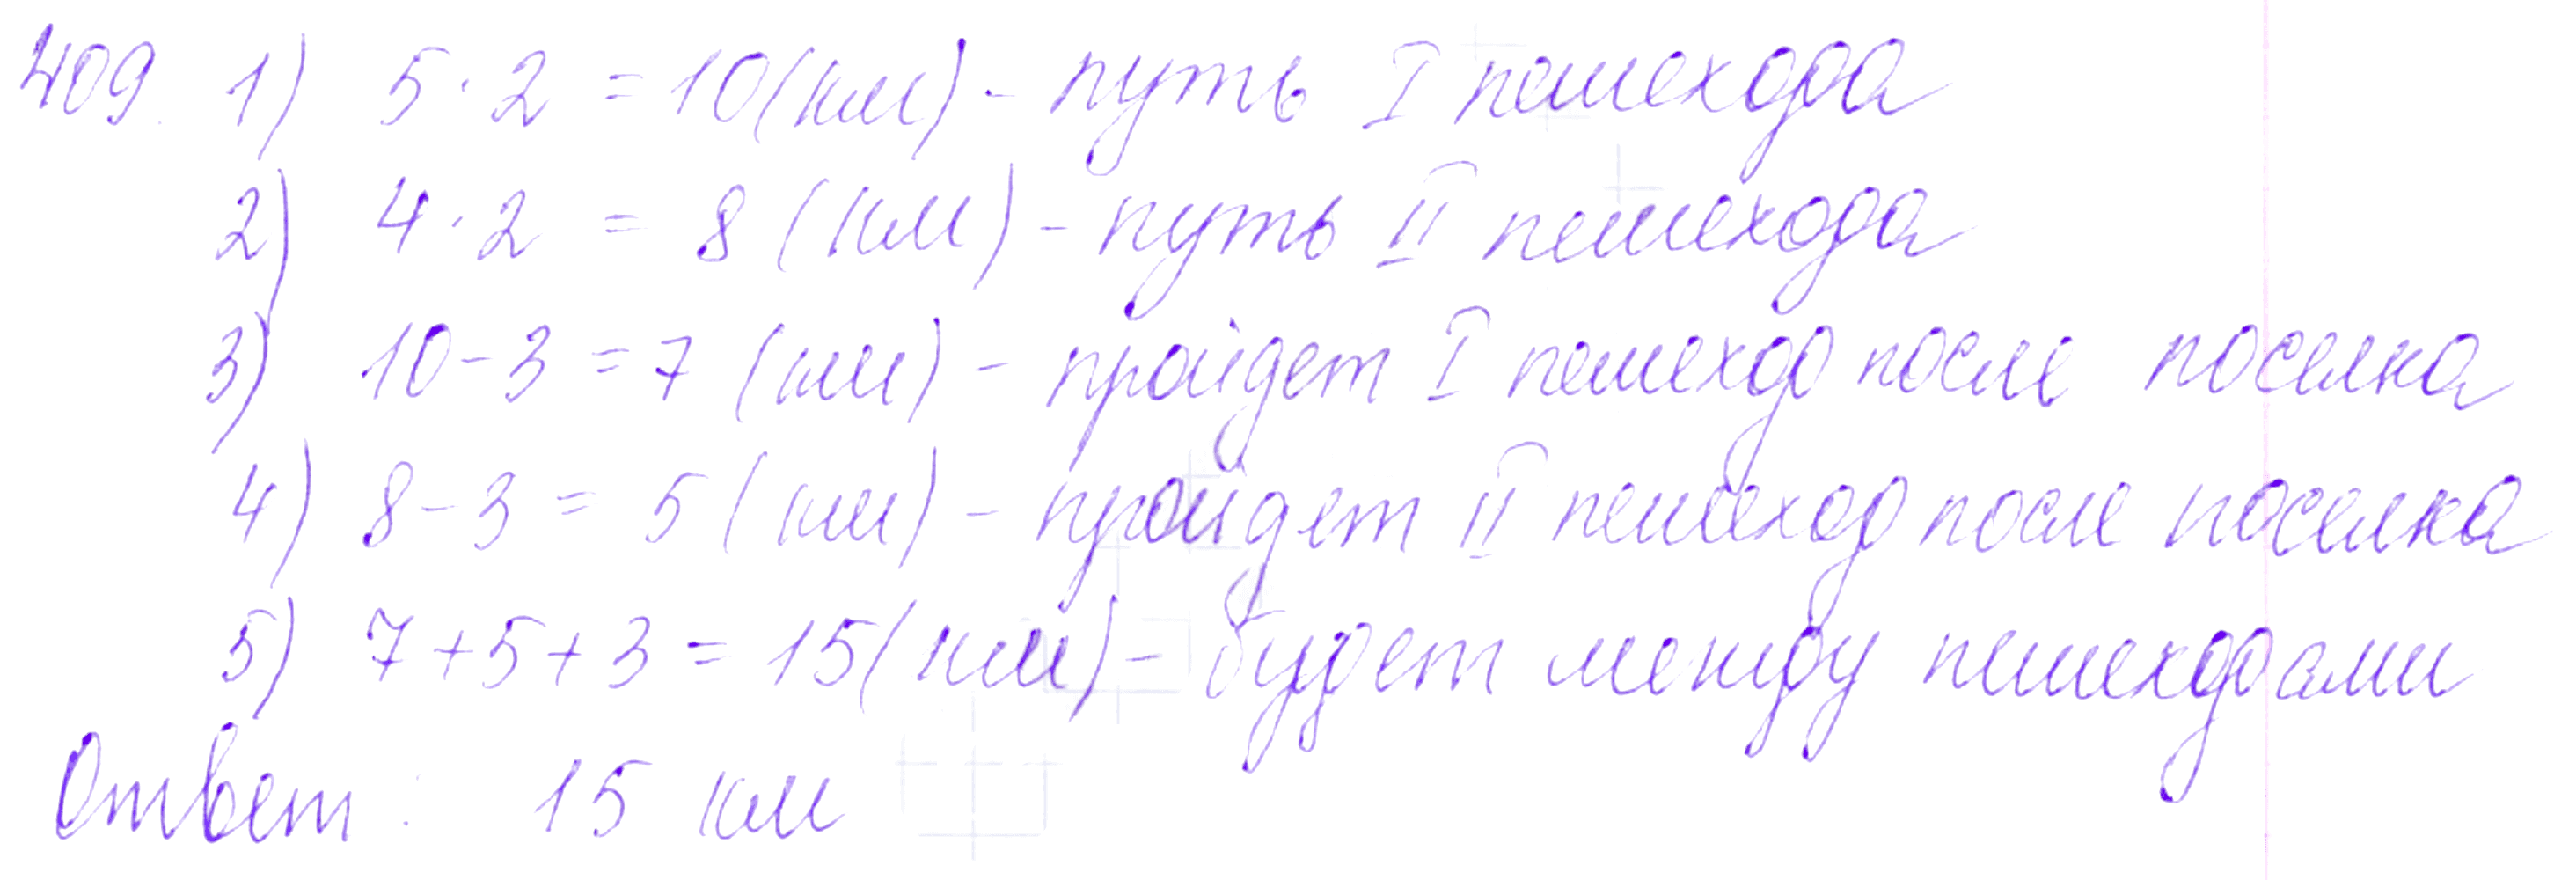 409. 1) 5 · 2 = 10 (км) - путь I пешехода
2) 4 · 2 = 8 (км) - путь II пешехода
3) 10 - 3 = 7 (км) - пройдет I пешеход после поселка
4) 8 - 3 = 5 (км) - пройдет II пешеход после поселка
5) 7 + 5 + 3 = 15 (км) - будет между пешеходами
Ответ: 15 км